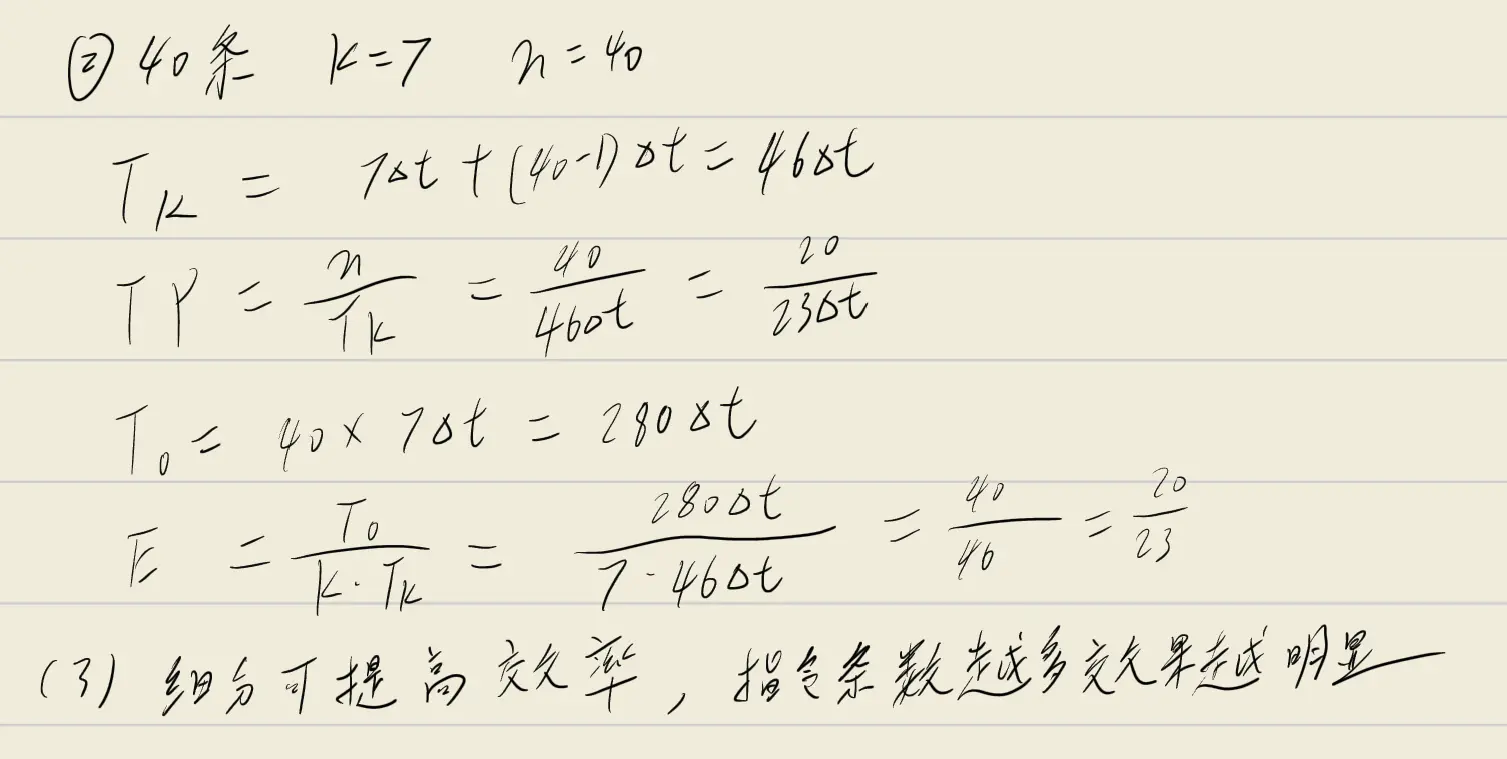 ② 40条 K=7 n=40
T_K = 7Δt + (40-1)Δt = 46Δt
TP = n/T_K = 40/46Δt = 20/23Δt
T_0 = 40×7Δt = 280Δt
E = T_0/(K·T_K) = 280Δt/(7·46Δt) = 40/46 = 20/23
(3) 细分可提高效率，指令条数越多效果越明显